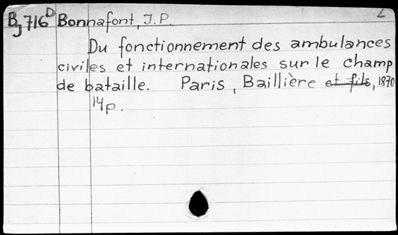 Bj716D Bonnafont, J.P. L
Du fonctionnement des ambulances
civiles et internationales sur le champ
de bataille. Paris, Baillière et fils, 1870
14p.